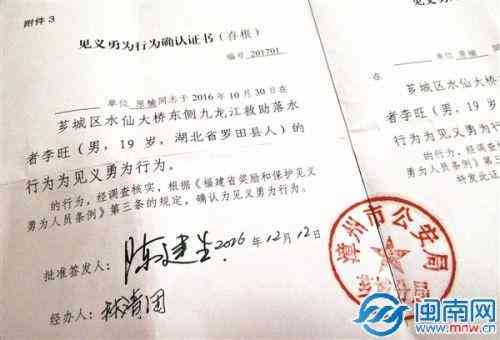 附件3
见义勇为行为确认证书（存根）
编号 201701
单位 同志于 2016 年 10 月 30 日在
芗城区水仙大桥东侧九龙江救助落水
者李旺（男，19 岁，湖北省罗田县人）的
行为为见义勇为行为。
的行为，经调查核实，根据《福建省奖励和保护见义
勇为人员条例》第三条的规定，确认为见义勇为行为。
批准签发人： 2016 年 12 月 12 日
经办人：
见义勇
编
单位
芗城区水仙
者李旺（男
行为为见义
的行为，经
勇为人员条例
转发此证
漳州市公安局
闽南网
www.mnw.cn